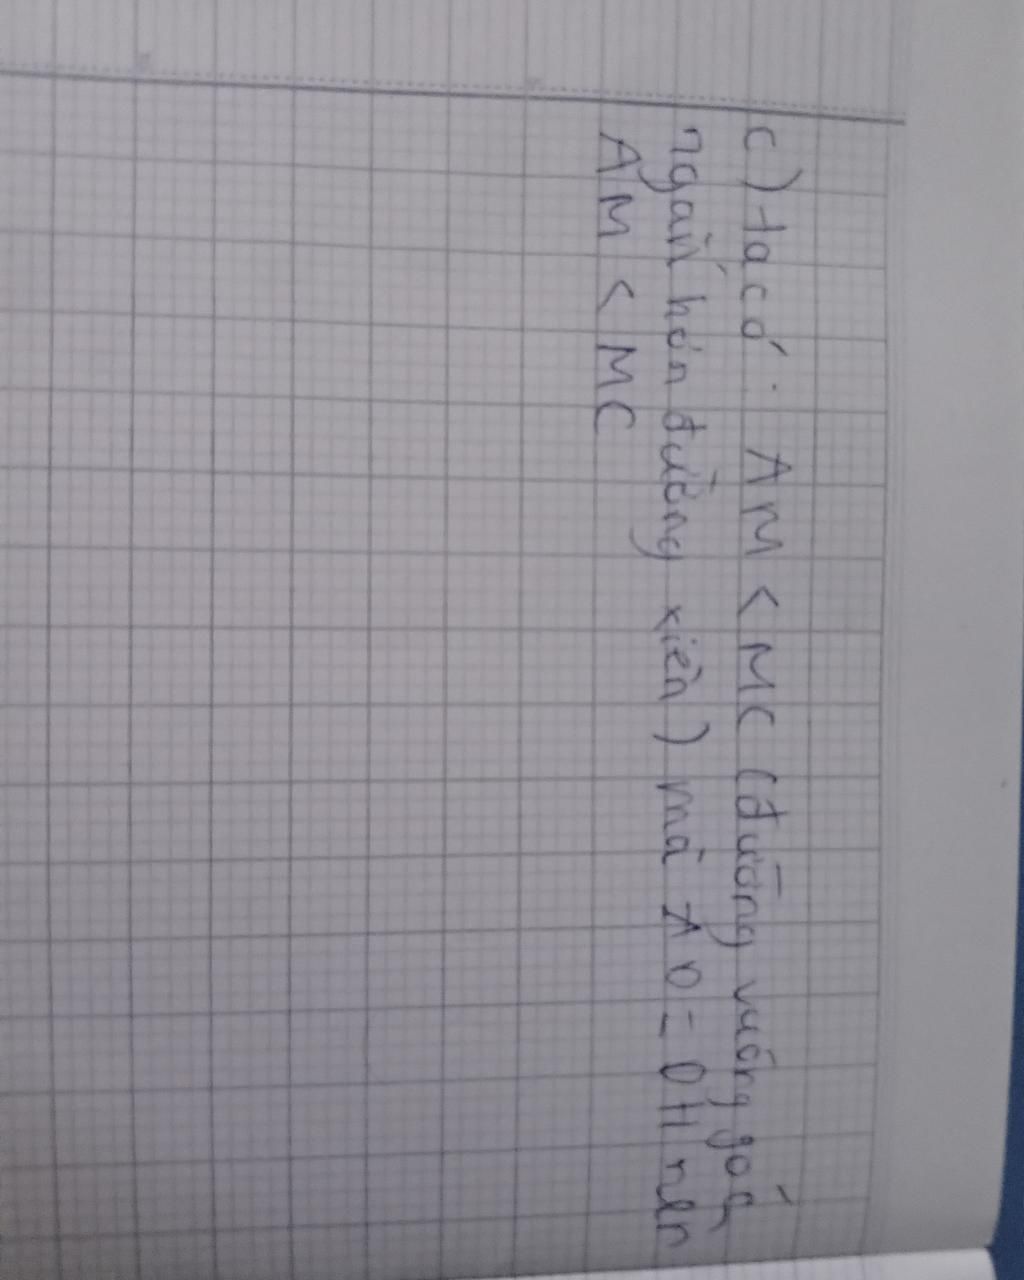 c) ta có : AM < MC (đường vuông góc
ngắn hơn đường xiên) mà AD = DH nên
AM < MC